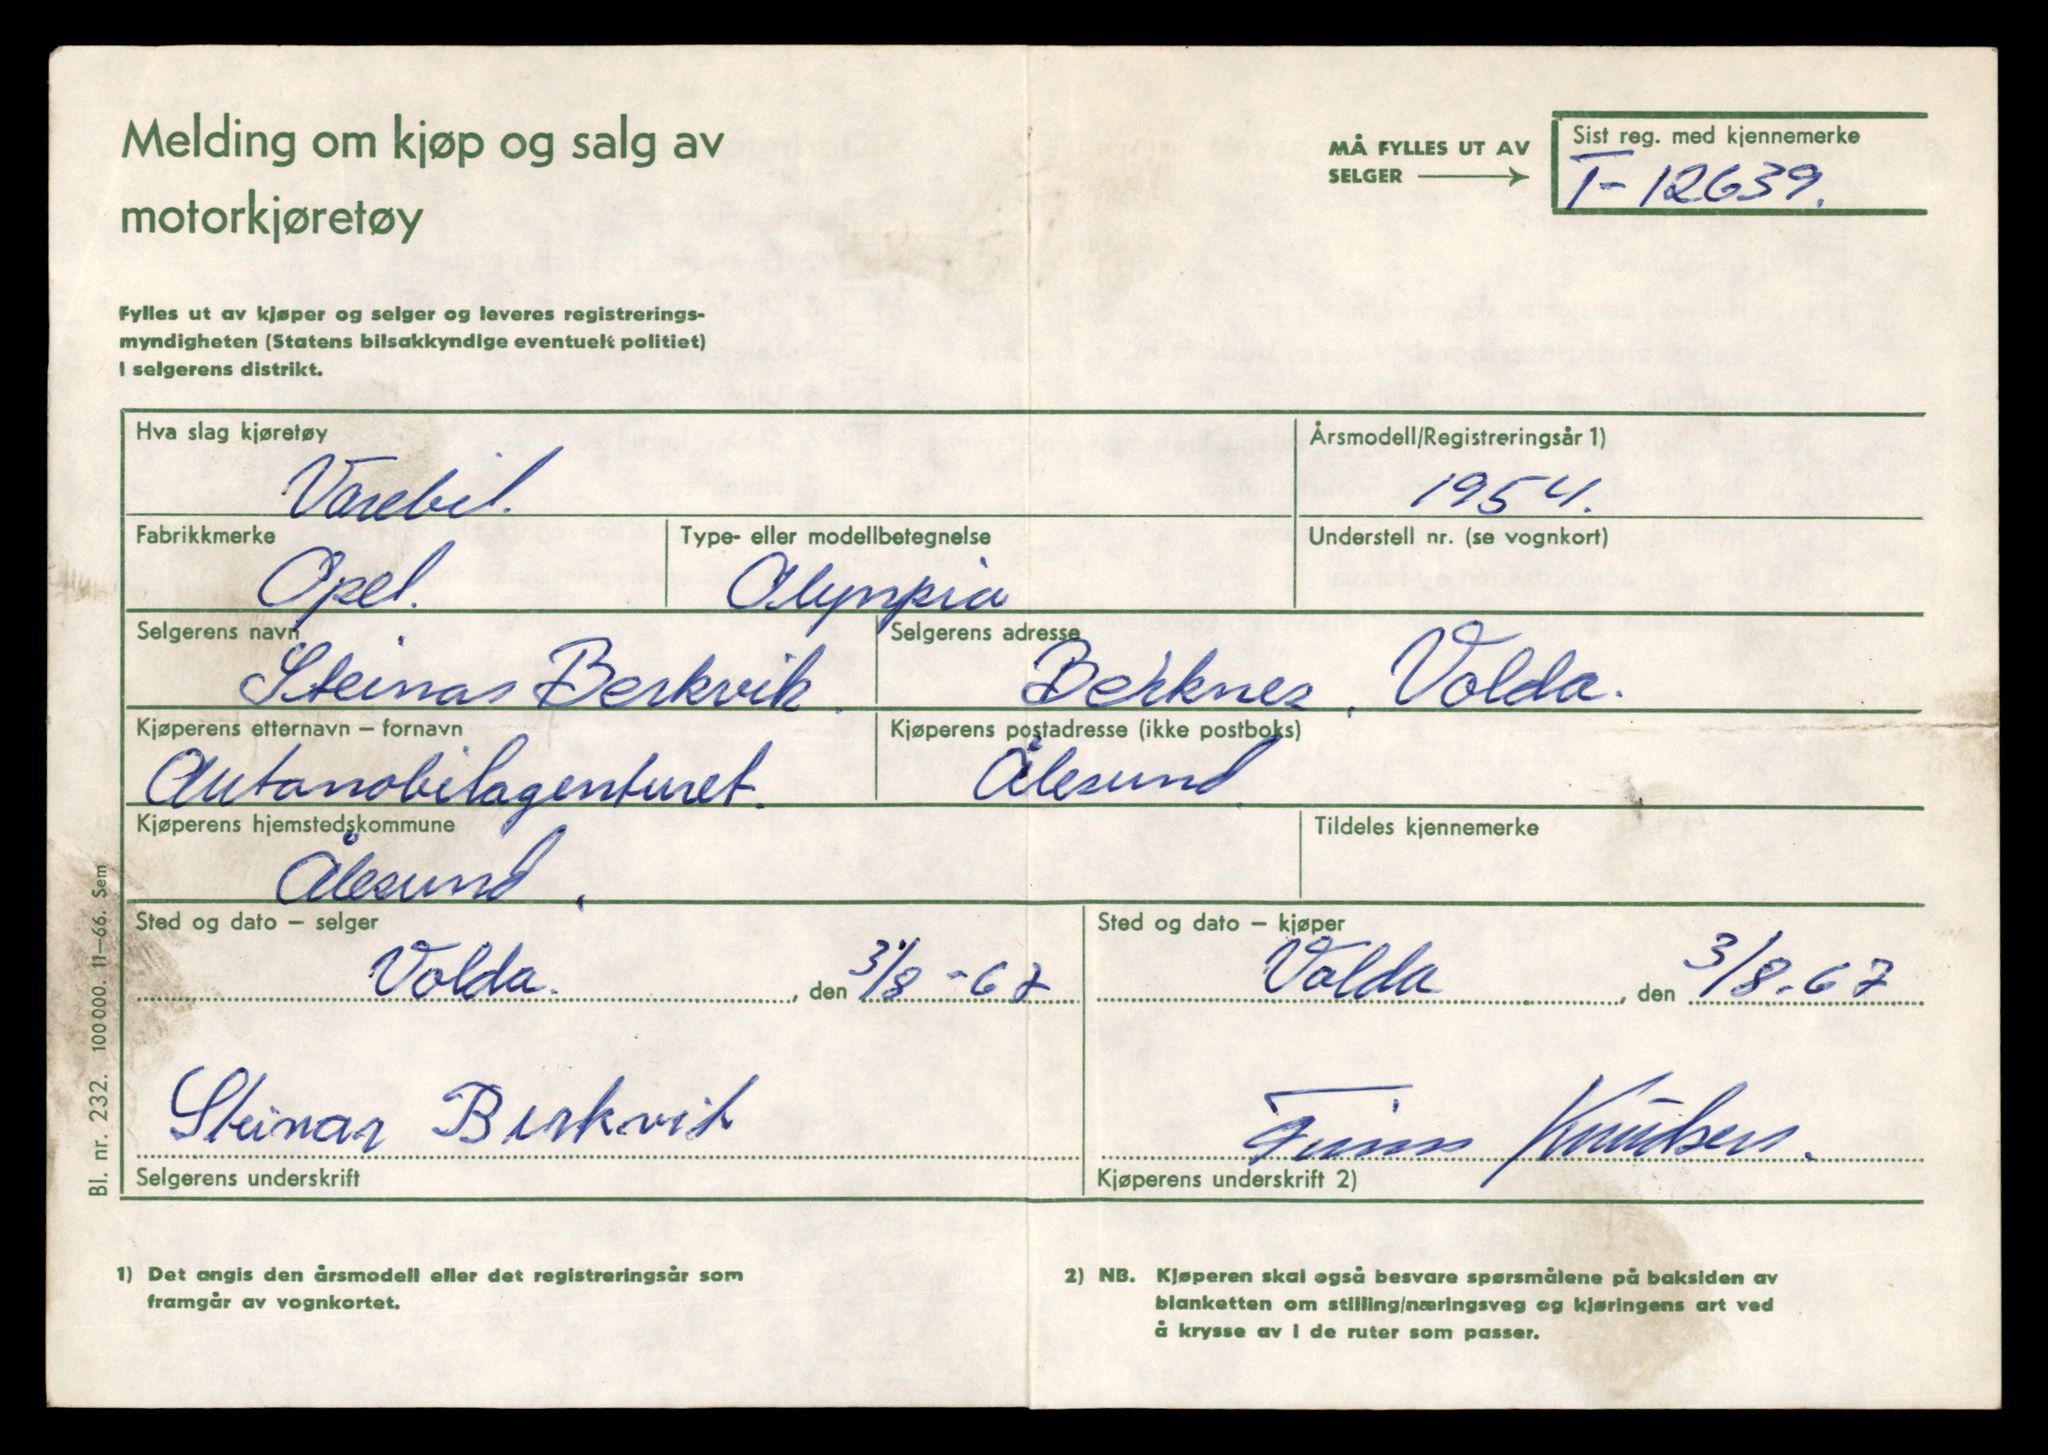 Melding om kjøp og salg av
motorkjøretøy
MÅ FYLLES UT AV
SELGER
Sist reg. med kjennemerke
T-12639.
Fylles ut av kjøper og selger og leveres registrerings-
myndigheten (Statens bilsakkyndige eventuelt politiet)
i selgerens distrikt.
Hva slag kjøretøy
Varebil.
Årsmodell/Registreringsår 1)
1954.
Fabrikkmerke
Opel.
Type- eller modellbetegnelse
Olympia
Understell nr. (se vognkort)
Selgerens navn
Steinar Berkvik.
Selgerens adresse
Berknes, Volda.
Kjøperens etternavn – fornavn
Automobilagenturet.
Kjøperens postadresse (ikke postboks)
Ålesund.
Kjøperens hjemstedskommune
Ålesund.
Tildeles kjennemerke
Sted og dato – selger
Volda. , den 3/8-67
Sted og dato – kjøper
Volda , den 3/8-67
Steinar Berkvik
Selgerens underskrift
Finn Knudsen.
Kjøperens underskrift 2)
Bl. nr. 232. 100 000. 11–66. Sem
1) Det angis den årsmodell eller det registreringsår som
framgår av vognkortet.
2) NB. Kjøperen skal også besvare spørsmålene på baksiden av
blanketten om stilling/næringsveg og kjøringens art ved
å krysse av i de ruter som passer.